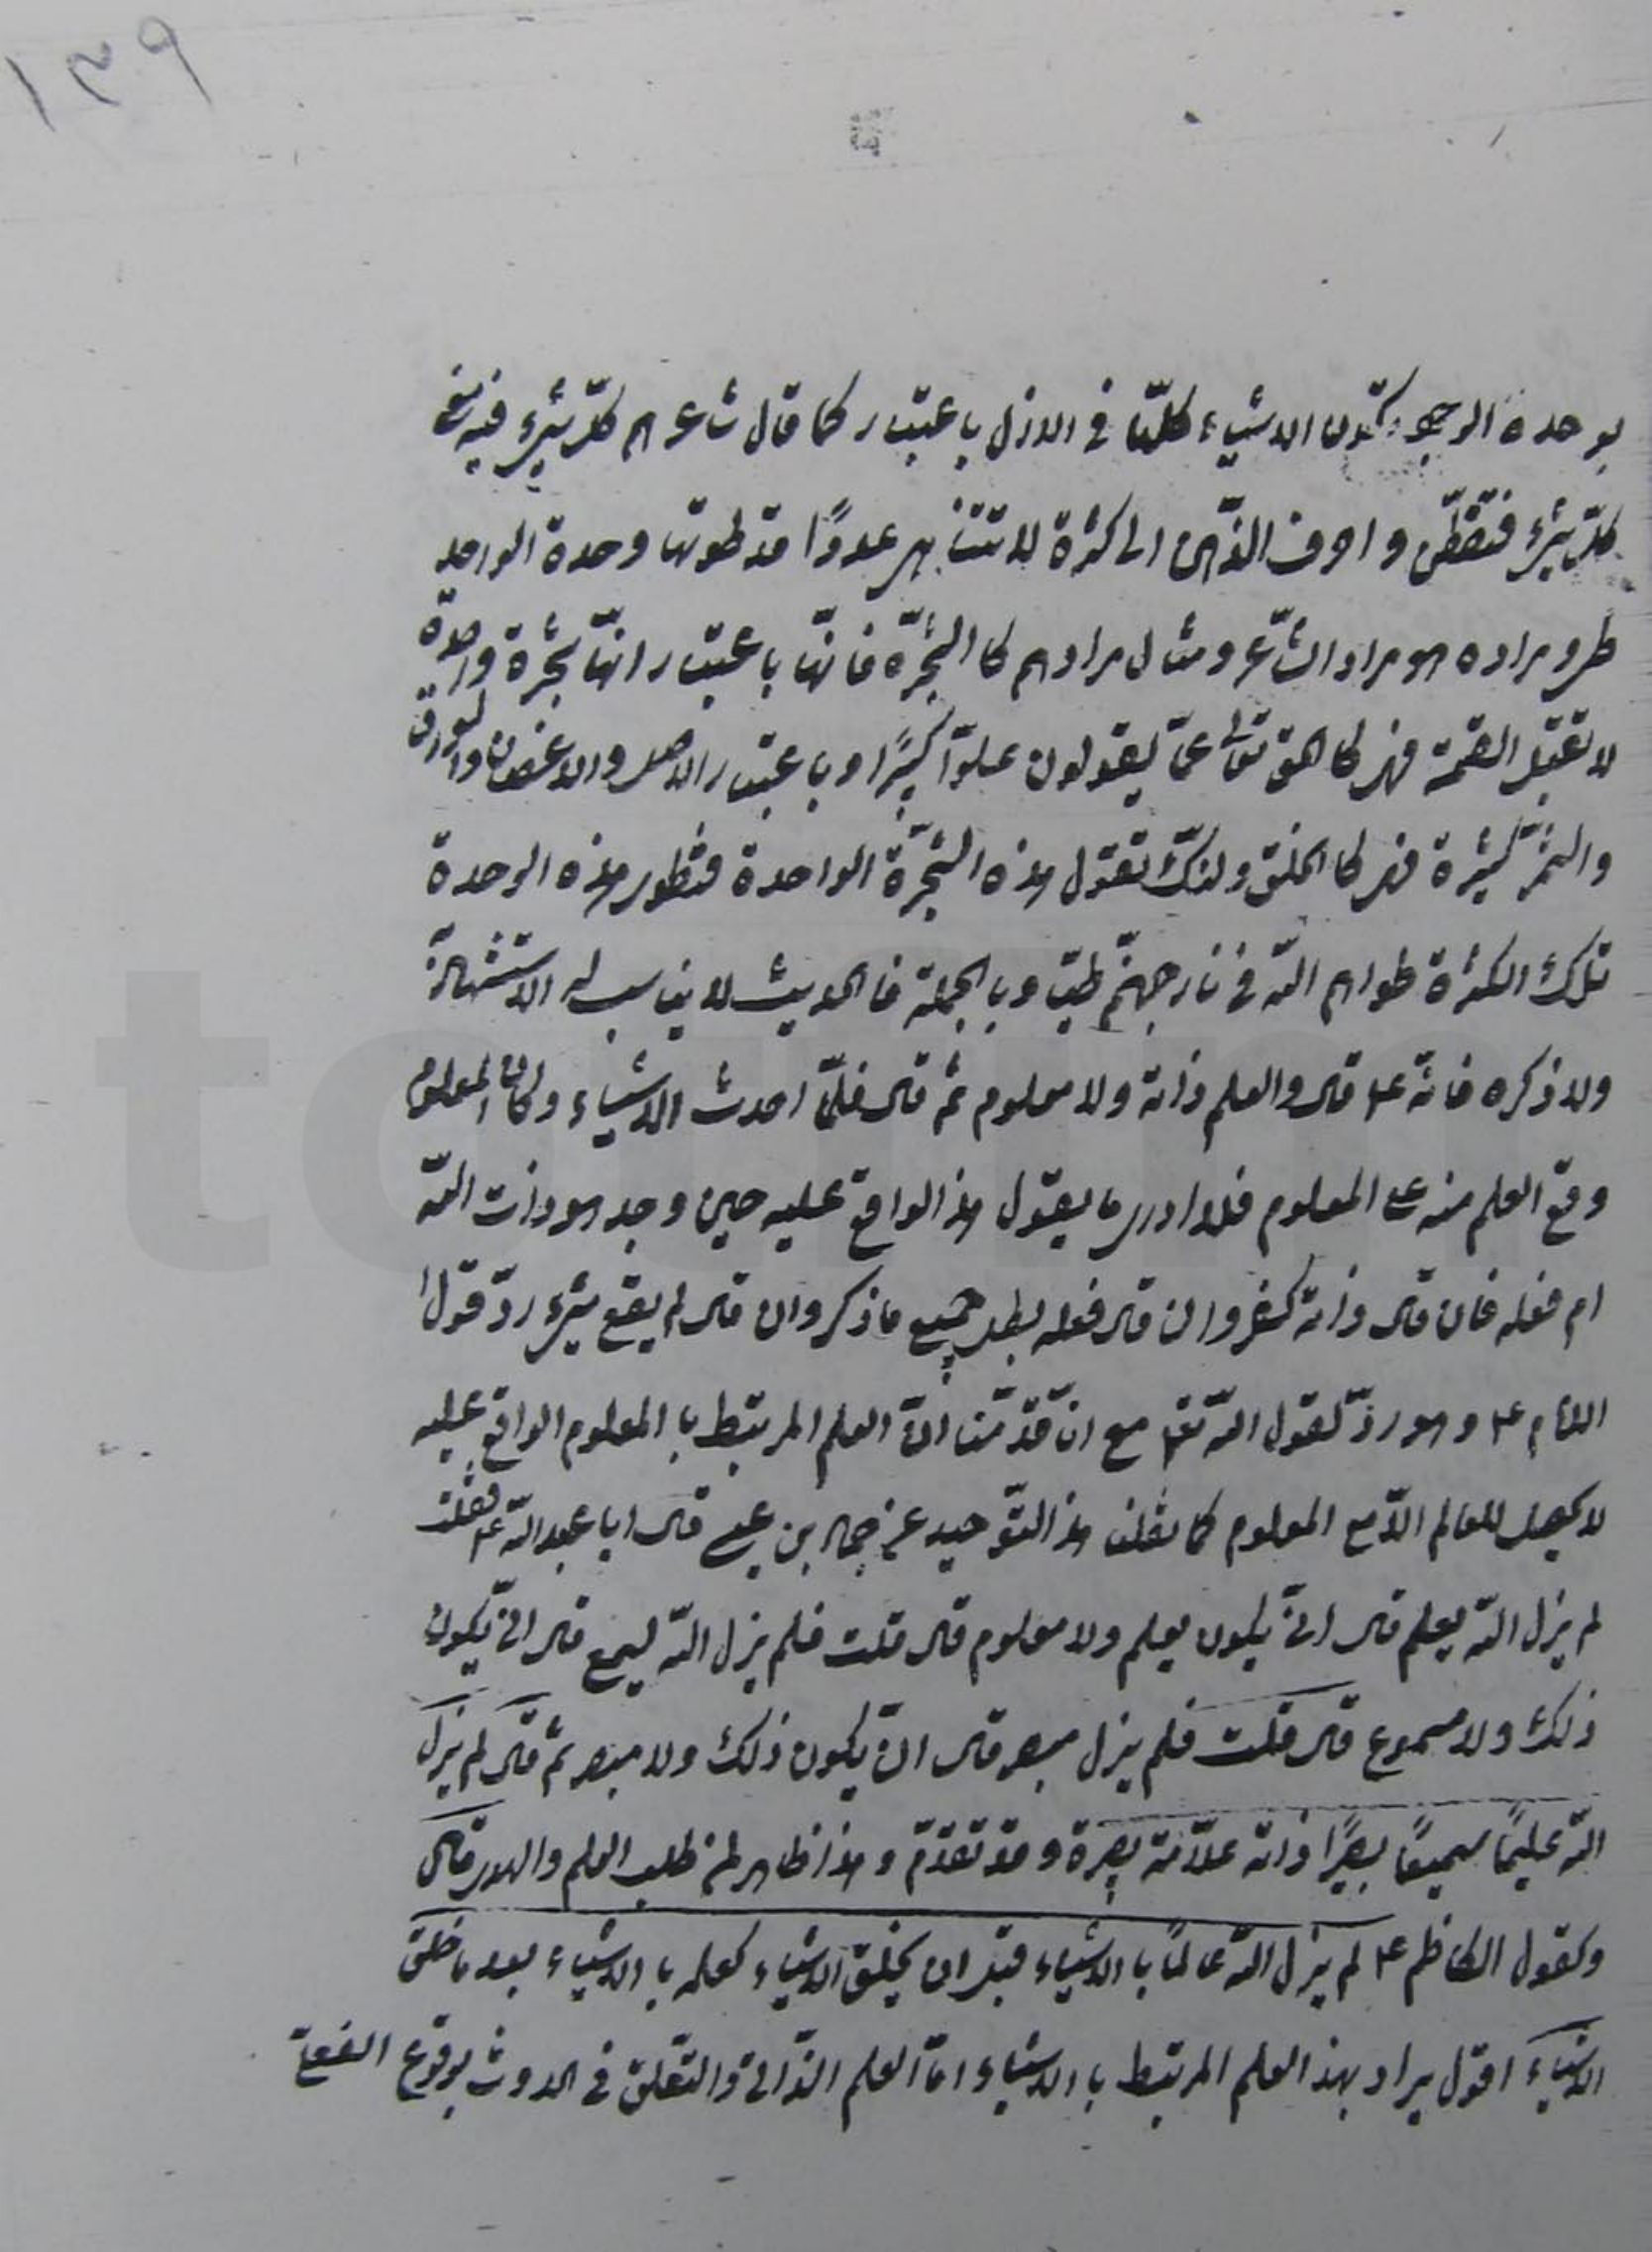 ١٣٩
بوحدة الوجود كون الاشياء كلّها فى الازل باعتبار كما قال شاعرهم كلّ شئ فيه معنى
كلّ شئ فتفطّن واصرف الذّهن الى كثرة لا تتناهى عددًا قد طوتها وحدة الواحد
طى ومراده هو مراد الشّاعر ومثال مرادهم كالشّجرة فانّها باعتبار انّها شجرة واحدة
لا تقبل القسمة فهى كالحق تعالى عمّا يقولون علوّا كبيرًا وباعتبار الاصل والاغصان والورق
والثّمر كثيرة فهى كالخلق ولذلك تقول هذه الشّجرة الواحدة فتطوى هذه الوحدة
تلك الكثرة طواهم اللّه فى نار جهنّم طيّا وبالجملة فالحديث لا يناسب له الاستشهاد
ولا ذكره فانّه ع‍ قال والعلم ذاته ولا معلوم ثم قال فلمّا احدث الاشياء وكان المعلوم
وقع العلم منه على المعلوم فلا ادرى ما يقول هذا الواقع عليه حين وجد هو ذات اللّه
ام فعله فان قال ذاته كفر وان قال فعله بطل جميع ما ذكر وان قال لم يقع شئ ردّ قول
الامام ع‍ وهو ردّ لقول اللّه تعالى مع انّا قدّمنا انّ العلم المرتبط بالمعلوم الواقع عليه
لا يحصل للعالم الّا مع المعلوم كما نقلنا هذا التّوحيد عن حماد بن عيسى قال ابا عبد اللّه ع‍ فقلت
لم يزل اللّه يعلم قال انّى يكون يعلم ولا معلوم قال قلت فلم يزل اللّه يسمع قال انّى يكون
ذلك ولا مسموع قال قلت فلم يزل يبصر قال انّى يكون ذلك ولا مبصر ثم قال لم يزل
اللّه عليمًا سميعًا بصيرًا ذاته علّامة بصيرة وقد تقدّم وهذا ظاهر لمن طلب العلم والهدى قال
وكقول الكاظم ع‍ لم يزل اللّه عالمًا بالاشياء قبل ان يخلق الاشياء كعلمه بالاشياء بعد ما خلق
الاشياء اقول يراد بهذا العلم المرتبط بالاشياء امّا العلم الذّاتى والتّعلّق فى الحدوث بوقوع الفعلى